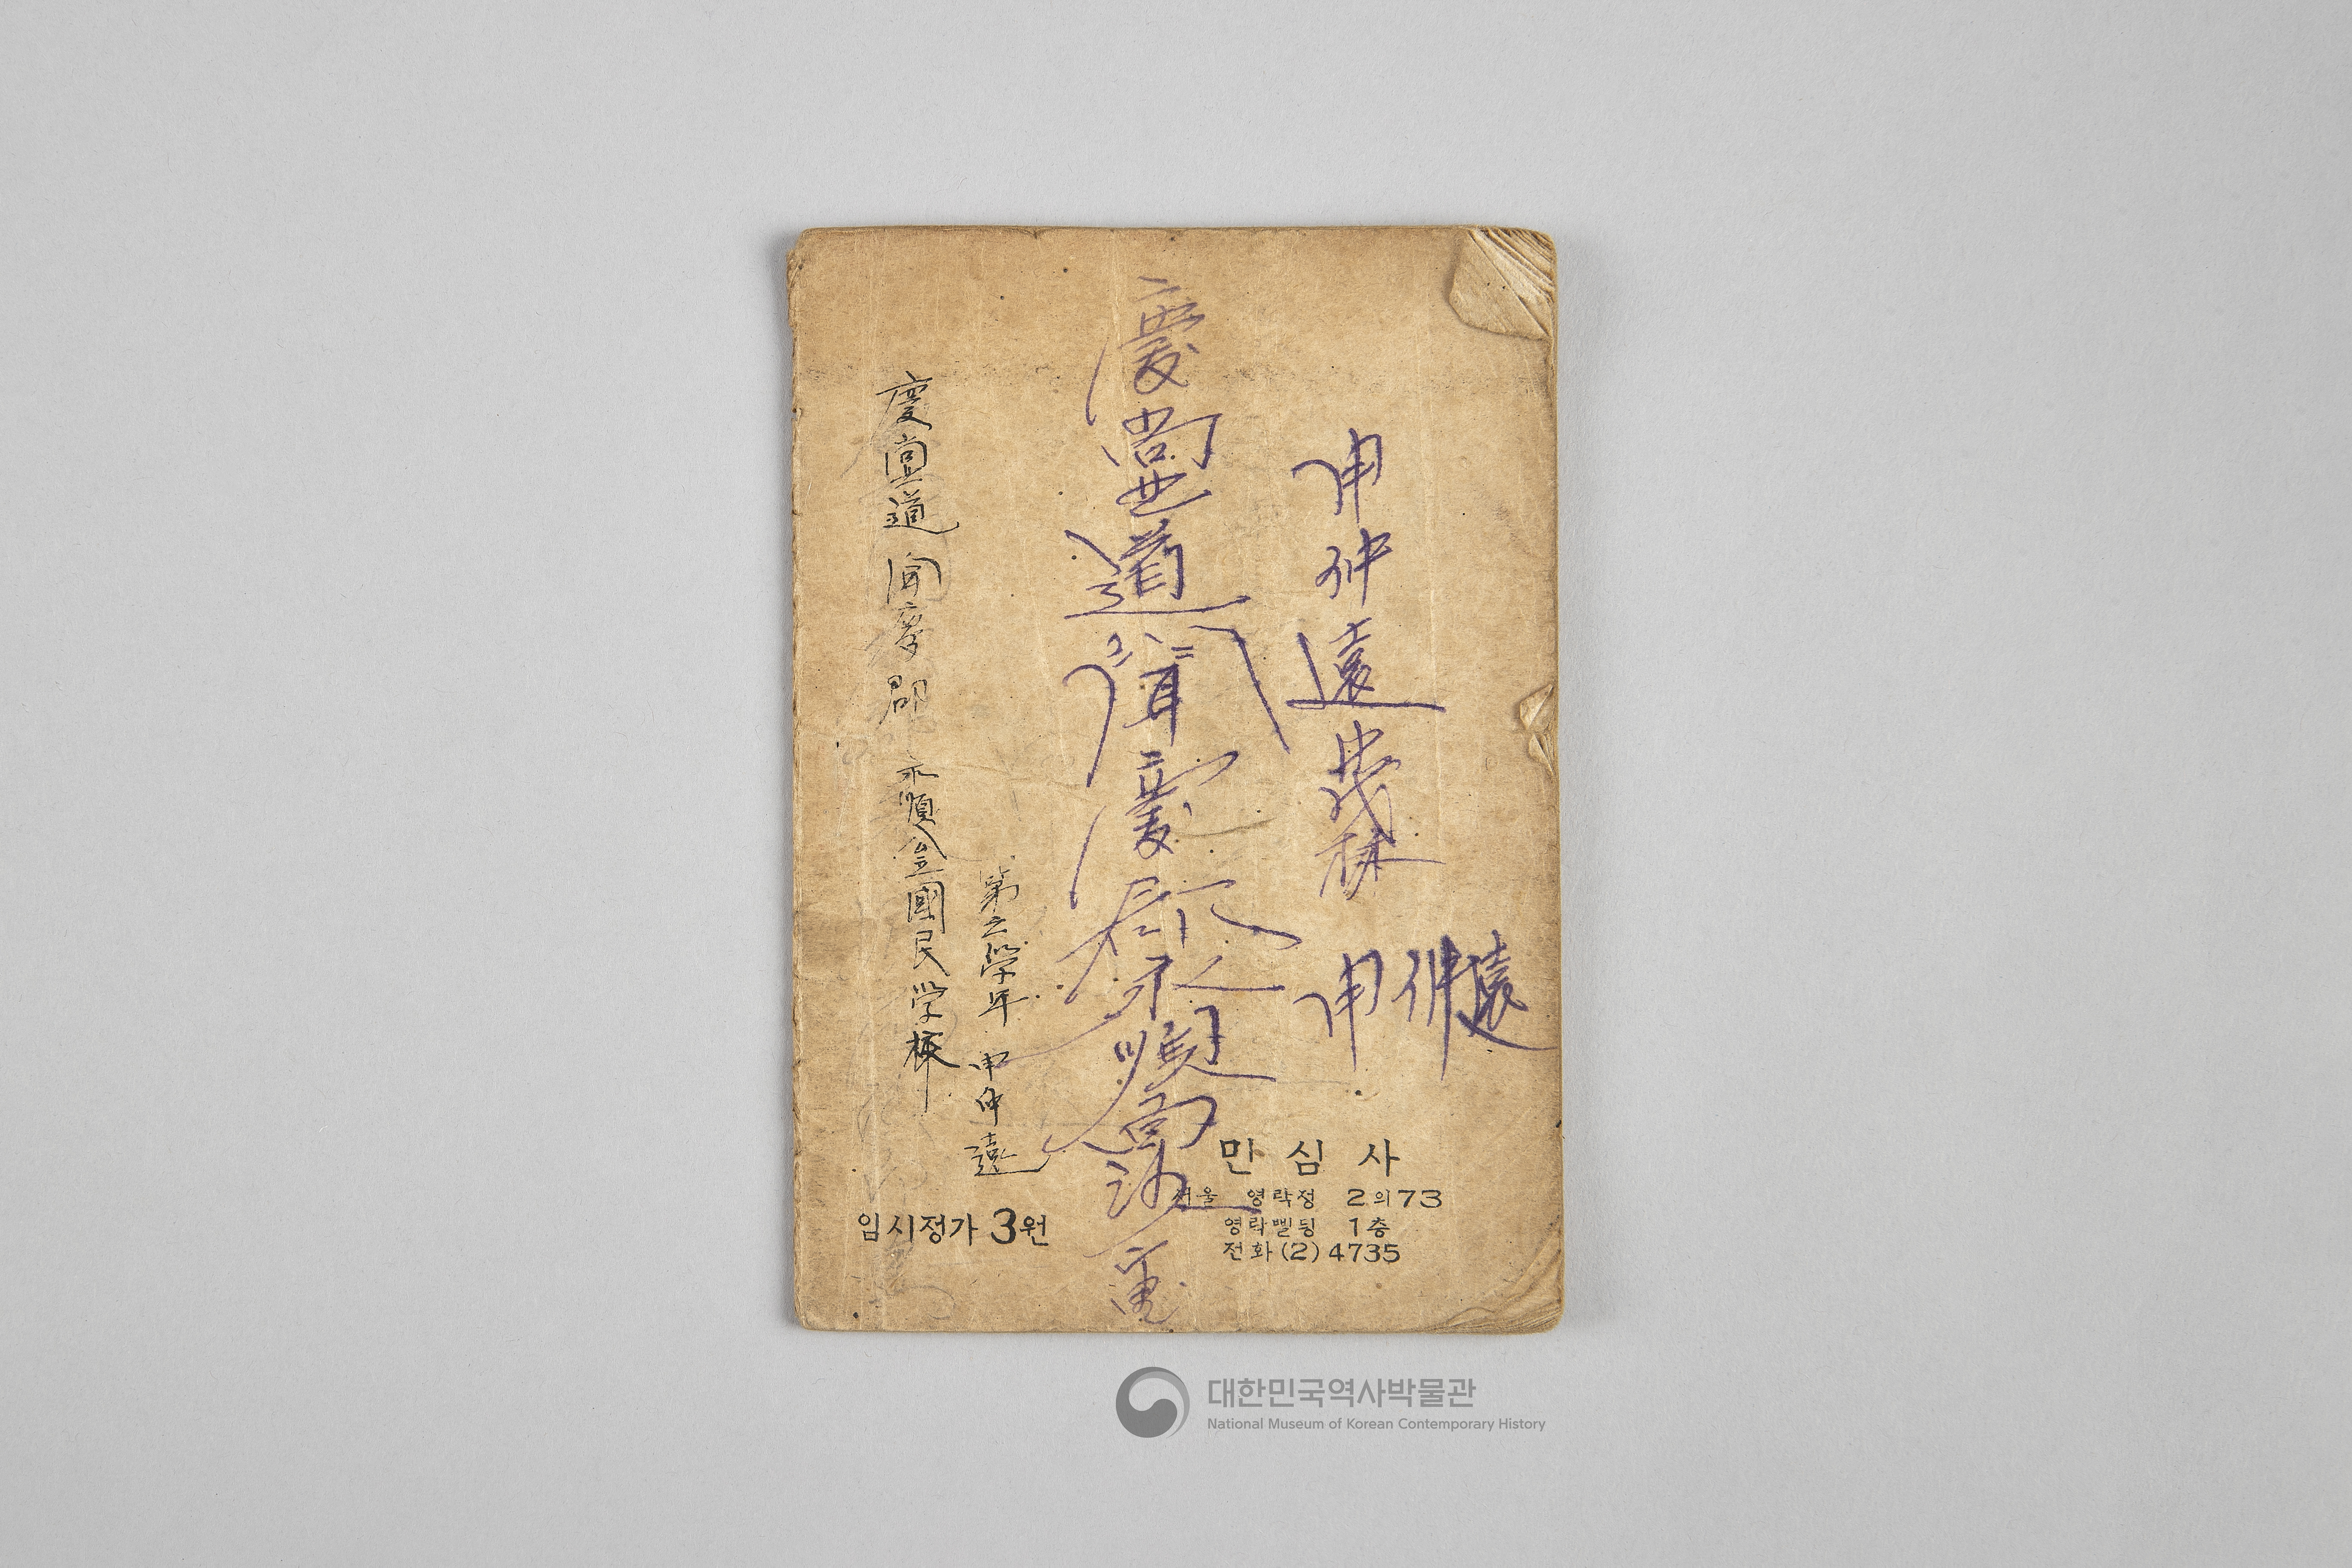 申仲遠
申仲遠
慶尚北道聞慶郡永順面
慶尚道 聞慶郡 永順公立國民学校
第五學年 申仲遠
만심사
서울 영락정 2의73
영락삘딩 1층
전화(2)4735
임시정가 3원
대한민국역사박물관
National Museum of Korean Contemporary History